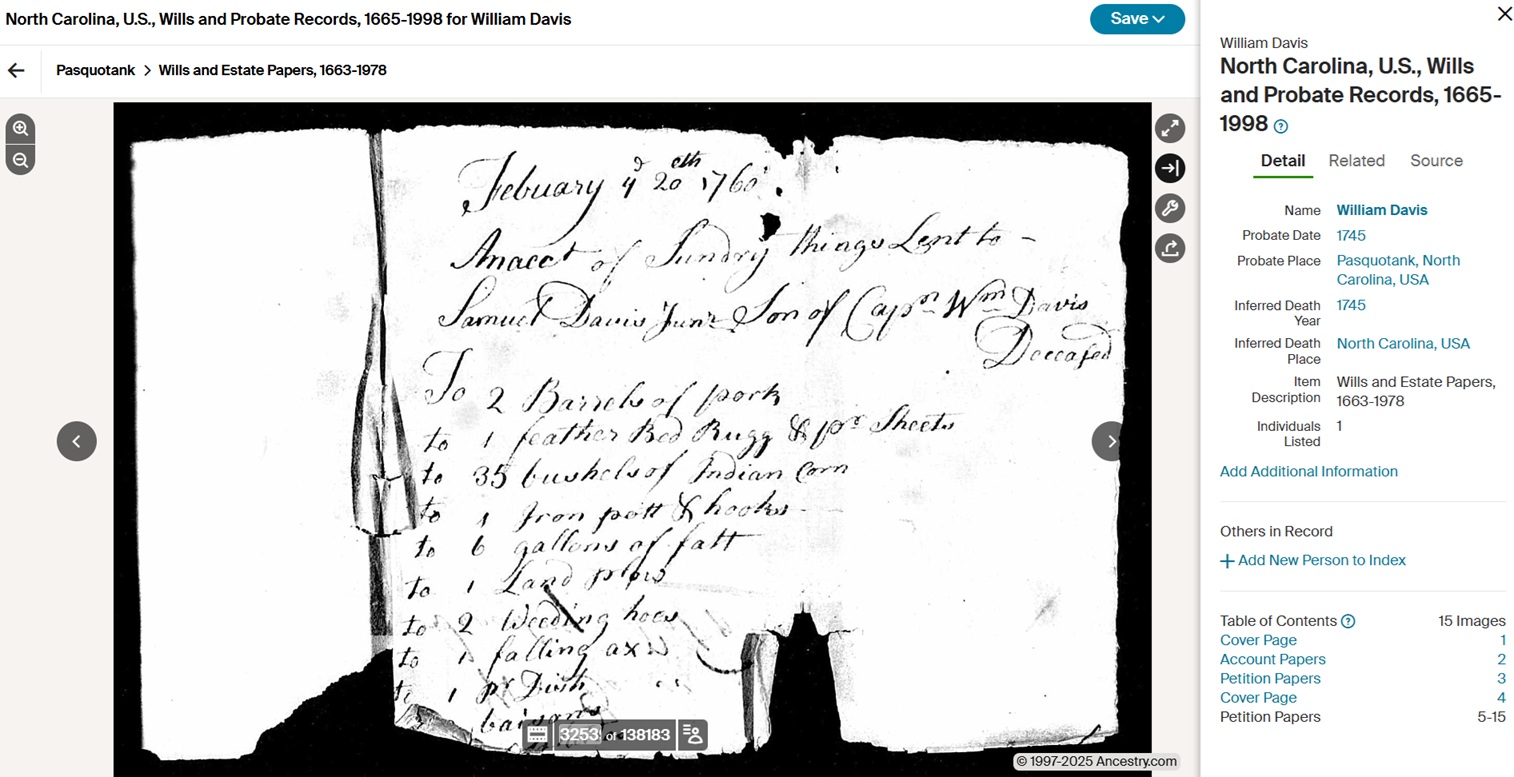 North Carolina, U.S., Wills and Probate Records, 1665-1998 for William Davis
Save
Pasquotank > Wills and Estate Papers, 1663-1978
Febuary yᵈ 20ᵉᵗʰ 1760
An acct of Sundry things Lent to -
Samuel Davis Junʳ Son of Capᵗⁿ Wᵐ Davis
Deceased
To 2 Barrels of pork
to 1 feather Bed Rugg & pʳ Sheets
to 35 bushels of Indian Corn
to 1 Iron pott & hooks -
to 6 gallons of fatt
to 1 Land plow
to 2 Weeding hoes
to 1 falling ax
to 1 pʳ Dish
3253 of 138183
© 1997-2025 Ancestry.com
William Davis
North Carolina, U.S., Wills
and Probate Records, 1665-
1998
Detail Related Source
Name William Davis
Probate Date 1745
Probate Place Pasquotank, North
Carolina, USA
Inferred Death 1745
Year
Inferred Death North Carolina, USA
Place
Item Wills and Estate Papers,
Description 1663-1978
Individuals 1
Listed
Add Additional Information
Others in Record
+ Add New Person to Index
Table of Contents 15 Images
Cover Page 1
Account Papers 2
Petition Papers 3
Cover Page 4
Petition Papers 5-15